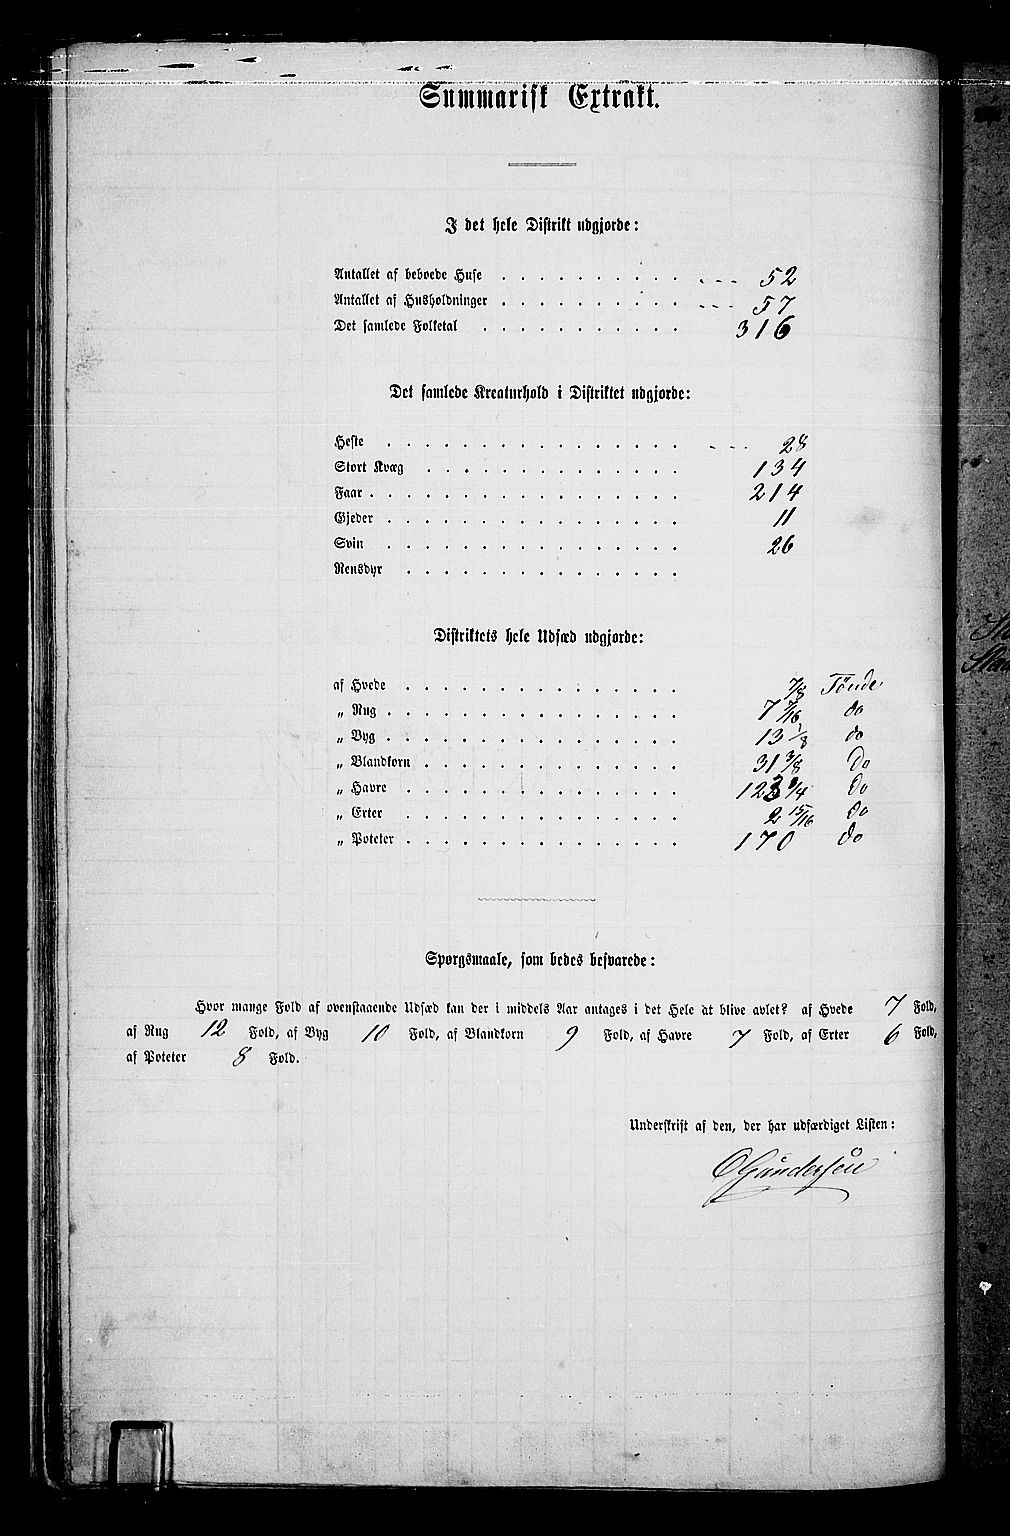 Summarisk Extrakt.
I det hele Distrikt udgjorde:
Antallet af beboede Huse . . . . . . . . . . 52
Antallet af Husholdninger . . . . . . . . . . 57
Det samlede Folketal . . . . . . . . . . . 316
Det samlede Kreaturhold i Distriktet udgjorde:
Heste . . . . . . . . . . . . . . . . 28
Stort Kvæg . . . . . . . . . . . . . . 134
Faar . . . . . . . . . . . . . . . . . 214
Gjeder . . . . . . . . . . . . . . . . 11
Svin . . . . . . . . . . . . . . . . 26
Rensdyr . . . . . . . . . . . . . . .
Distriktets hele Udsæd udgjorde:
af Hvede . . . . . . . . . . . . . . . 7/8 Tönde
„ Rug . . . . . . . . . . . . . . . . 7 do
„ Byg . . . . . . . . . . . . . . . . 13 1/8 do
„ Blandkorn . . . . . . . . . . . . . . 31 3/8 Do
„ Havre . . . . . . . . . . . . . . . /4 Do
„ Erter . . . . . . . . . . . . . . . 2 15/16 do
„ Poteter . . . . . . . . . . . . . . . 170 do
Spørgsmaale, som bedes besvarede:
Hvor mange Fold af ovenstaaende Udsæd kan der i middels Aar antages i det Hele at blive avlet? af Hvede 7 Fold,
af Rug 12 Fold, af Byg 10 Fold, af Blandkorn 9 Fold, af Havre 7 Fold, af Erter 6 Fold,
af Poteter 8 Fold.
Underskrift af den, der har udfærdiget Listen:
O Gundersen